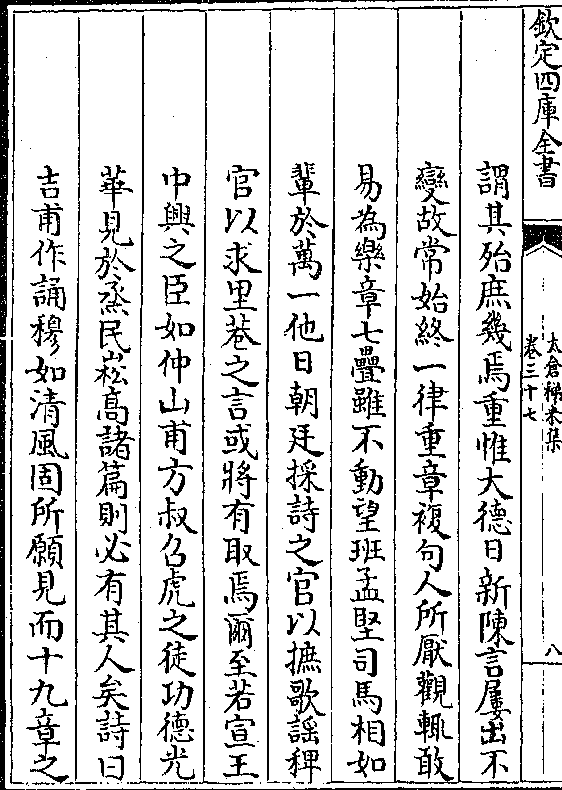 欽定四庫全書
太倉稊米集
卷三十七
八
謂其殆庶幾焉重惟大德日新陳言屢出不
變故常始終一律重章複句人所厭觀輒敢
易為樂章七疊雖不動望班孟堅司馬相如
輩於萬一他日朝廷採詩之官以摭歌謡稗
官以求里巷之言或將有取焉爾至若宣王
中興之臣如仲山甫方叔召虎之徒功德光
華見於烝民崧高諸篇則必有其人矣詩曰
吉甫作誦穆如清風固所願見而十九章之